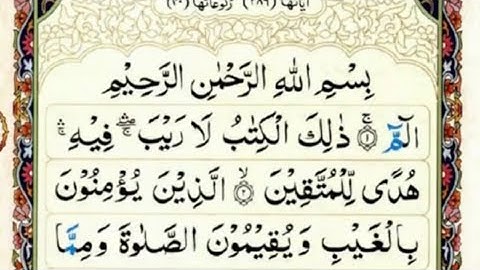 اٰیاتها (٢٨٦) رکوعاتها (٤٠)
بِسْمِ اللّٰهِ الرَّحْمٰنِ الرَّحِیْمِ
الٓمّٓ ۚ‏﴿١﴾ ذٰلِكَ الْكِتٰبُ لَا رَیْبَ ۛۖ فِیْهِ ۛۚ
هُدًی لِّلْمُتَّقِیْنَ ۙ﴿٢﴾ الَّذِیْنَ یُؤْمِنُوْنَ
بِالْغَیْبِ وَ یُقِیْمُوْنَ الصَّلٰوةَ وَ مِمَّا